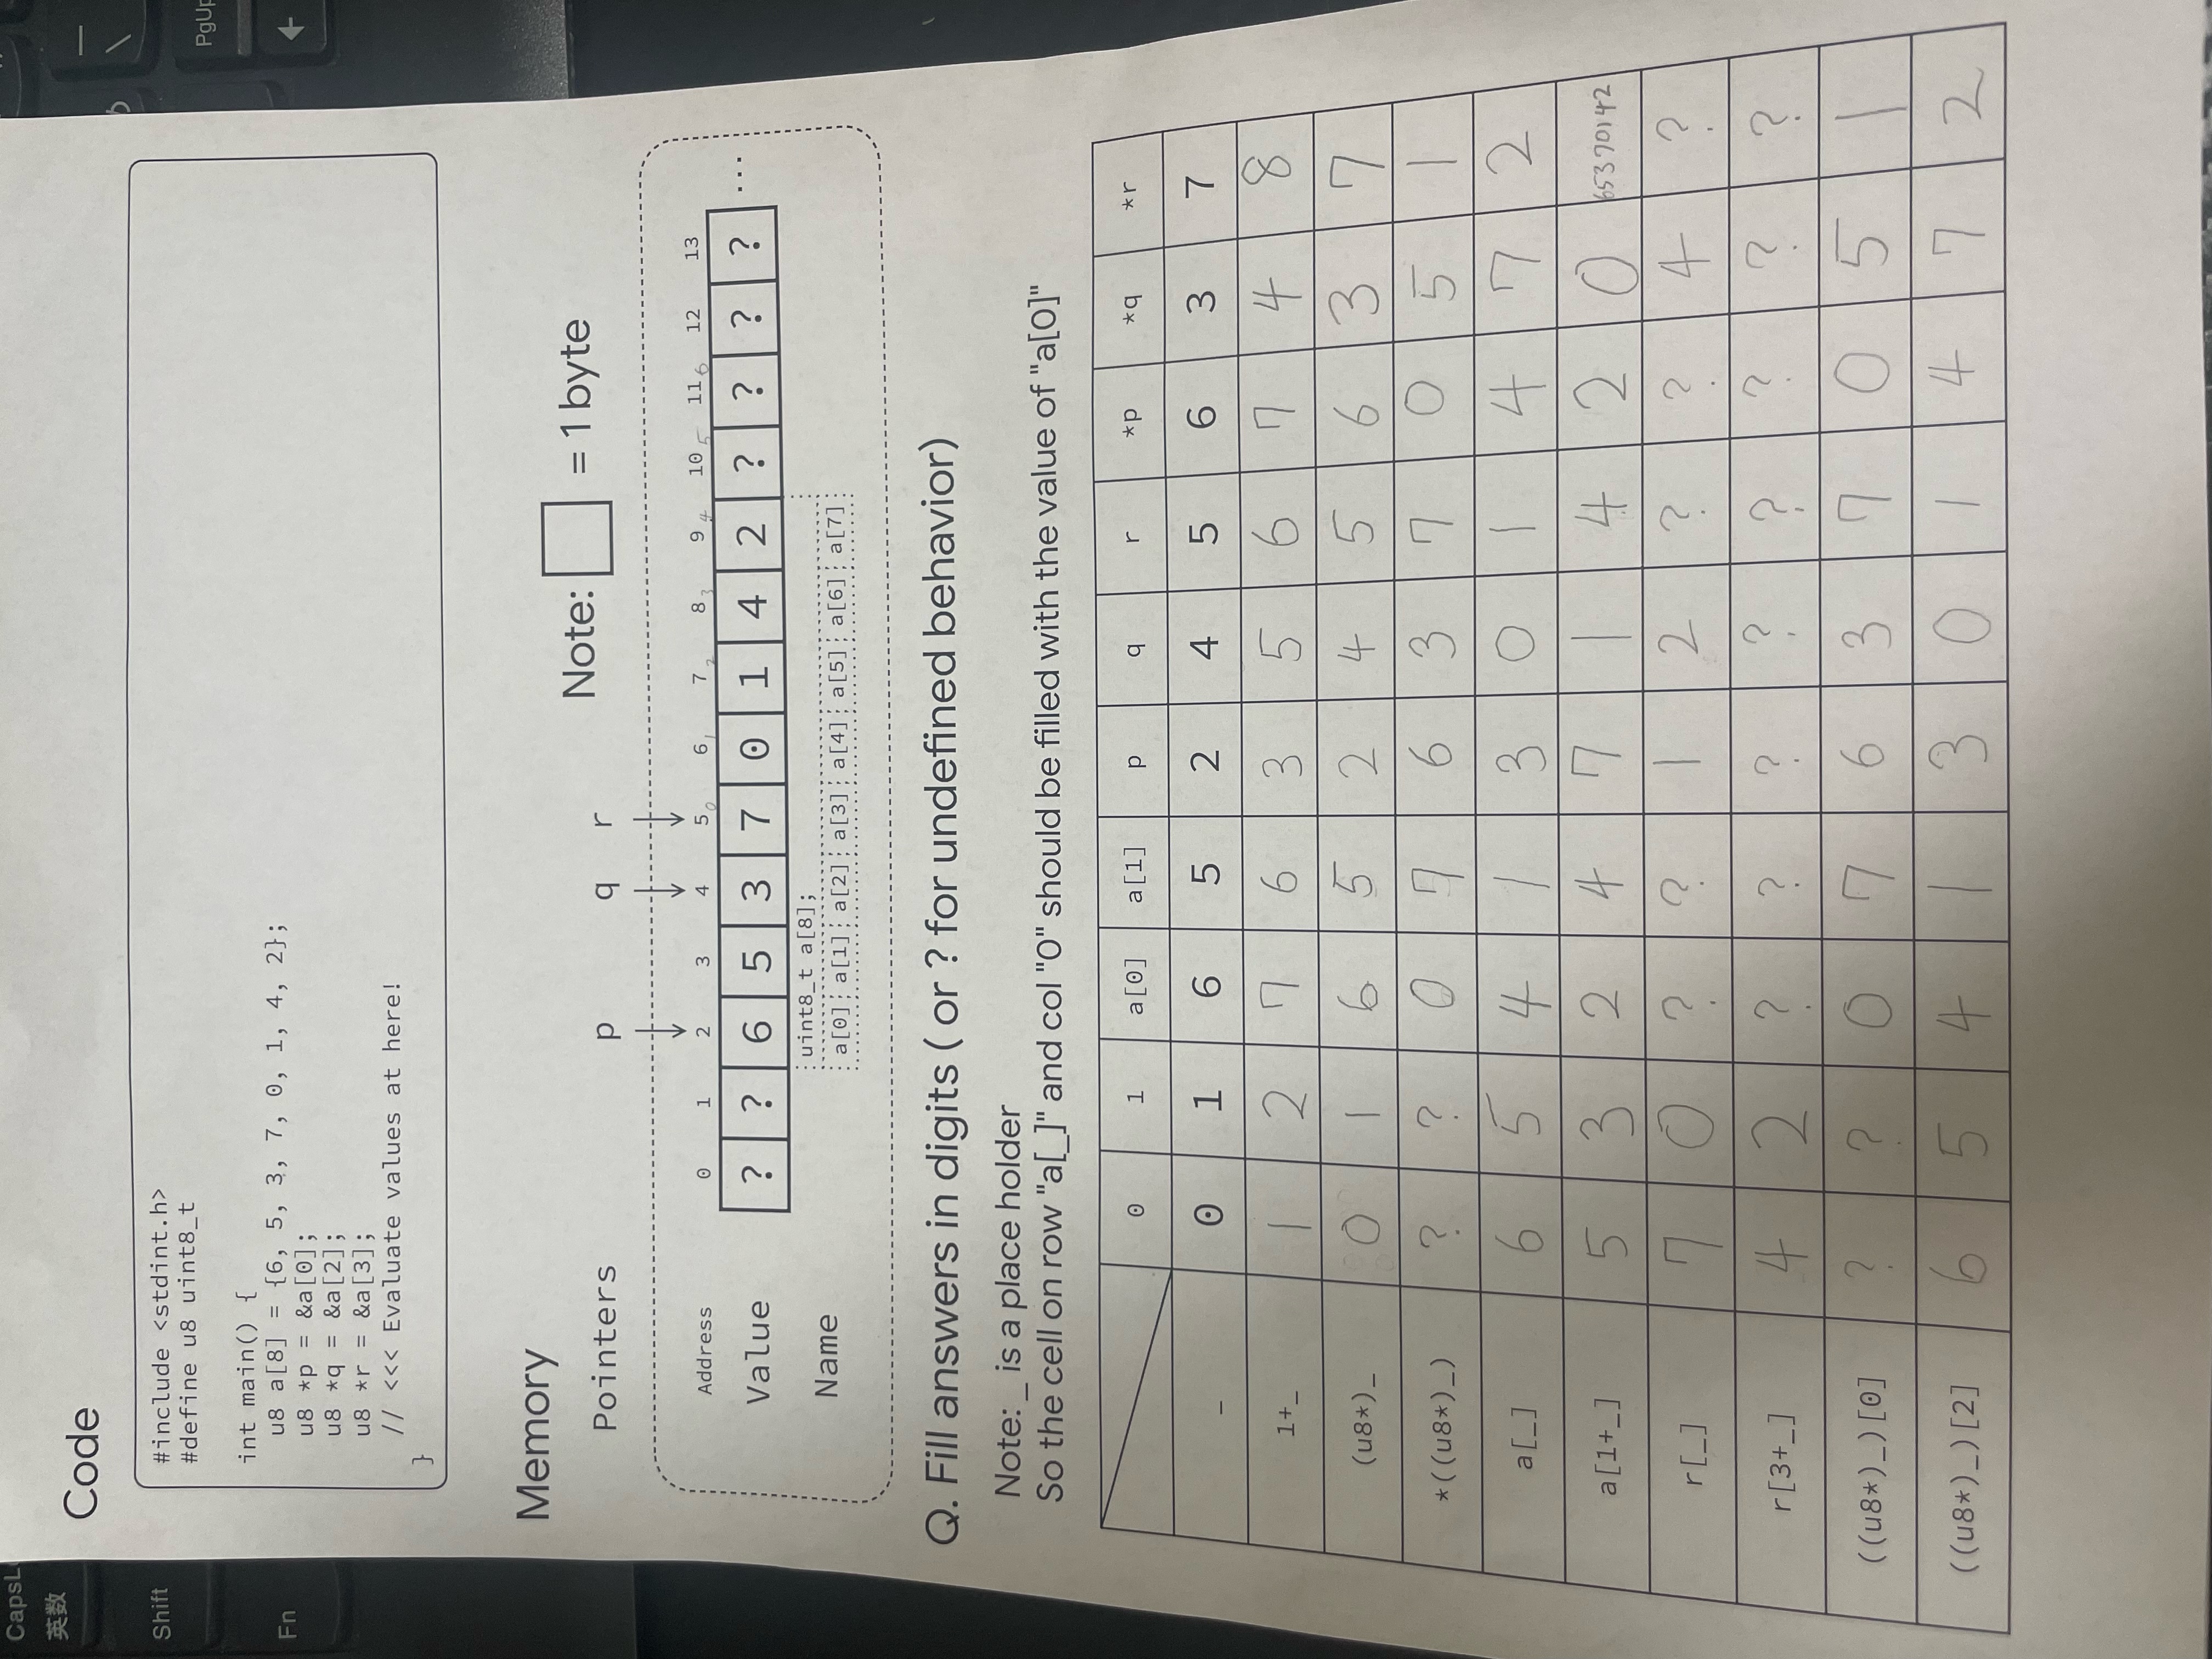 CapsL
英数
Shift
Fn
PgUp
Code
#include <stdint.h>
#define u8 uint8_t
int main() {
u8 a[8] = {6, 5, 3, 7, 0, 1, 4, 2};
u8 *p = &a[0];
u8 *q = &a[2];
u8 *r = &a[3];
// <<< Evaluate values at here!
}
Memory
Note: = 1 byte
Pointers p q r
Address 0 1 2 3 4 5 0 6 1 7 2 8 3 9 4 10 5 11 6 12 13
Value ? ? 6 5 3 7 0 1 4 2 ? ? ? ? ...
uint8_t a[8];
Name a[0] a[1] a[2] a[3] a[4] a[5] a[6] a[7]
Q. Fill answers in digits ( or ? for undefined behavior)
Note: _ is a place holder
So the cell on row "a[_]" and col "0" should be filled with the value of "a[0]"
0 1 a[0] a[1] p q r *p *q *r
_ 0 1 6 5 2 4 5 6 3 7
1+_ 1 2 7 6 3 5 6 7 4 8
(u8*)_ 0 1 6 5 2 4 5 6 3 7
*((u8*)_) ? ? 0 7 6 3 7 0 5 1
a[_] 6 5 4 1 3 0 1 4 7 2
a[1+_] 5 3 2 4 7 1 4 2 0 65370142
r[_] 7 0 ? ? 1 2 ? ? 4 ?
r[3+_] 4 2 ? ? ? ? ? ? ? ?
((u8*)_)[0] ? ? 0 7 6 3 7 0 5 1
((u8*)_)[2] 6 5 4 1 3 0 1 4 7 2